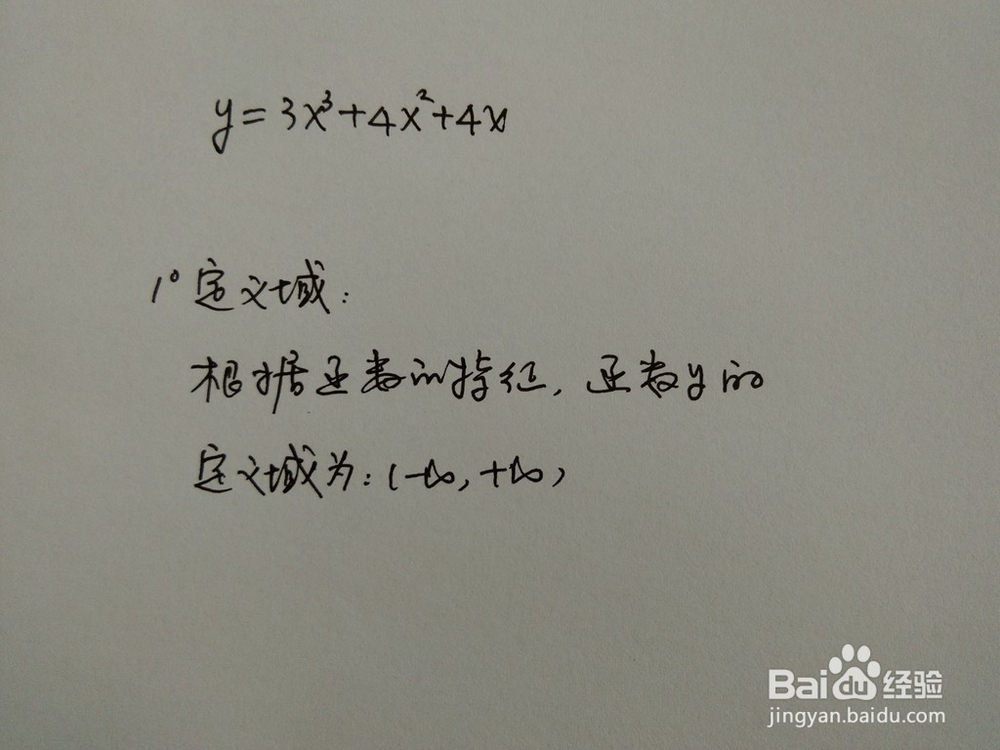 y=3x³+4x²+4x
1°定义域:
根据函数的特征,函数y的
定义域为:(-∞,+∞)
Baidu经验
jingyan.baidu.com